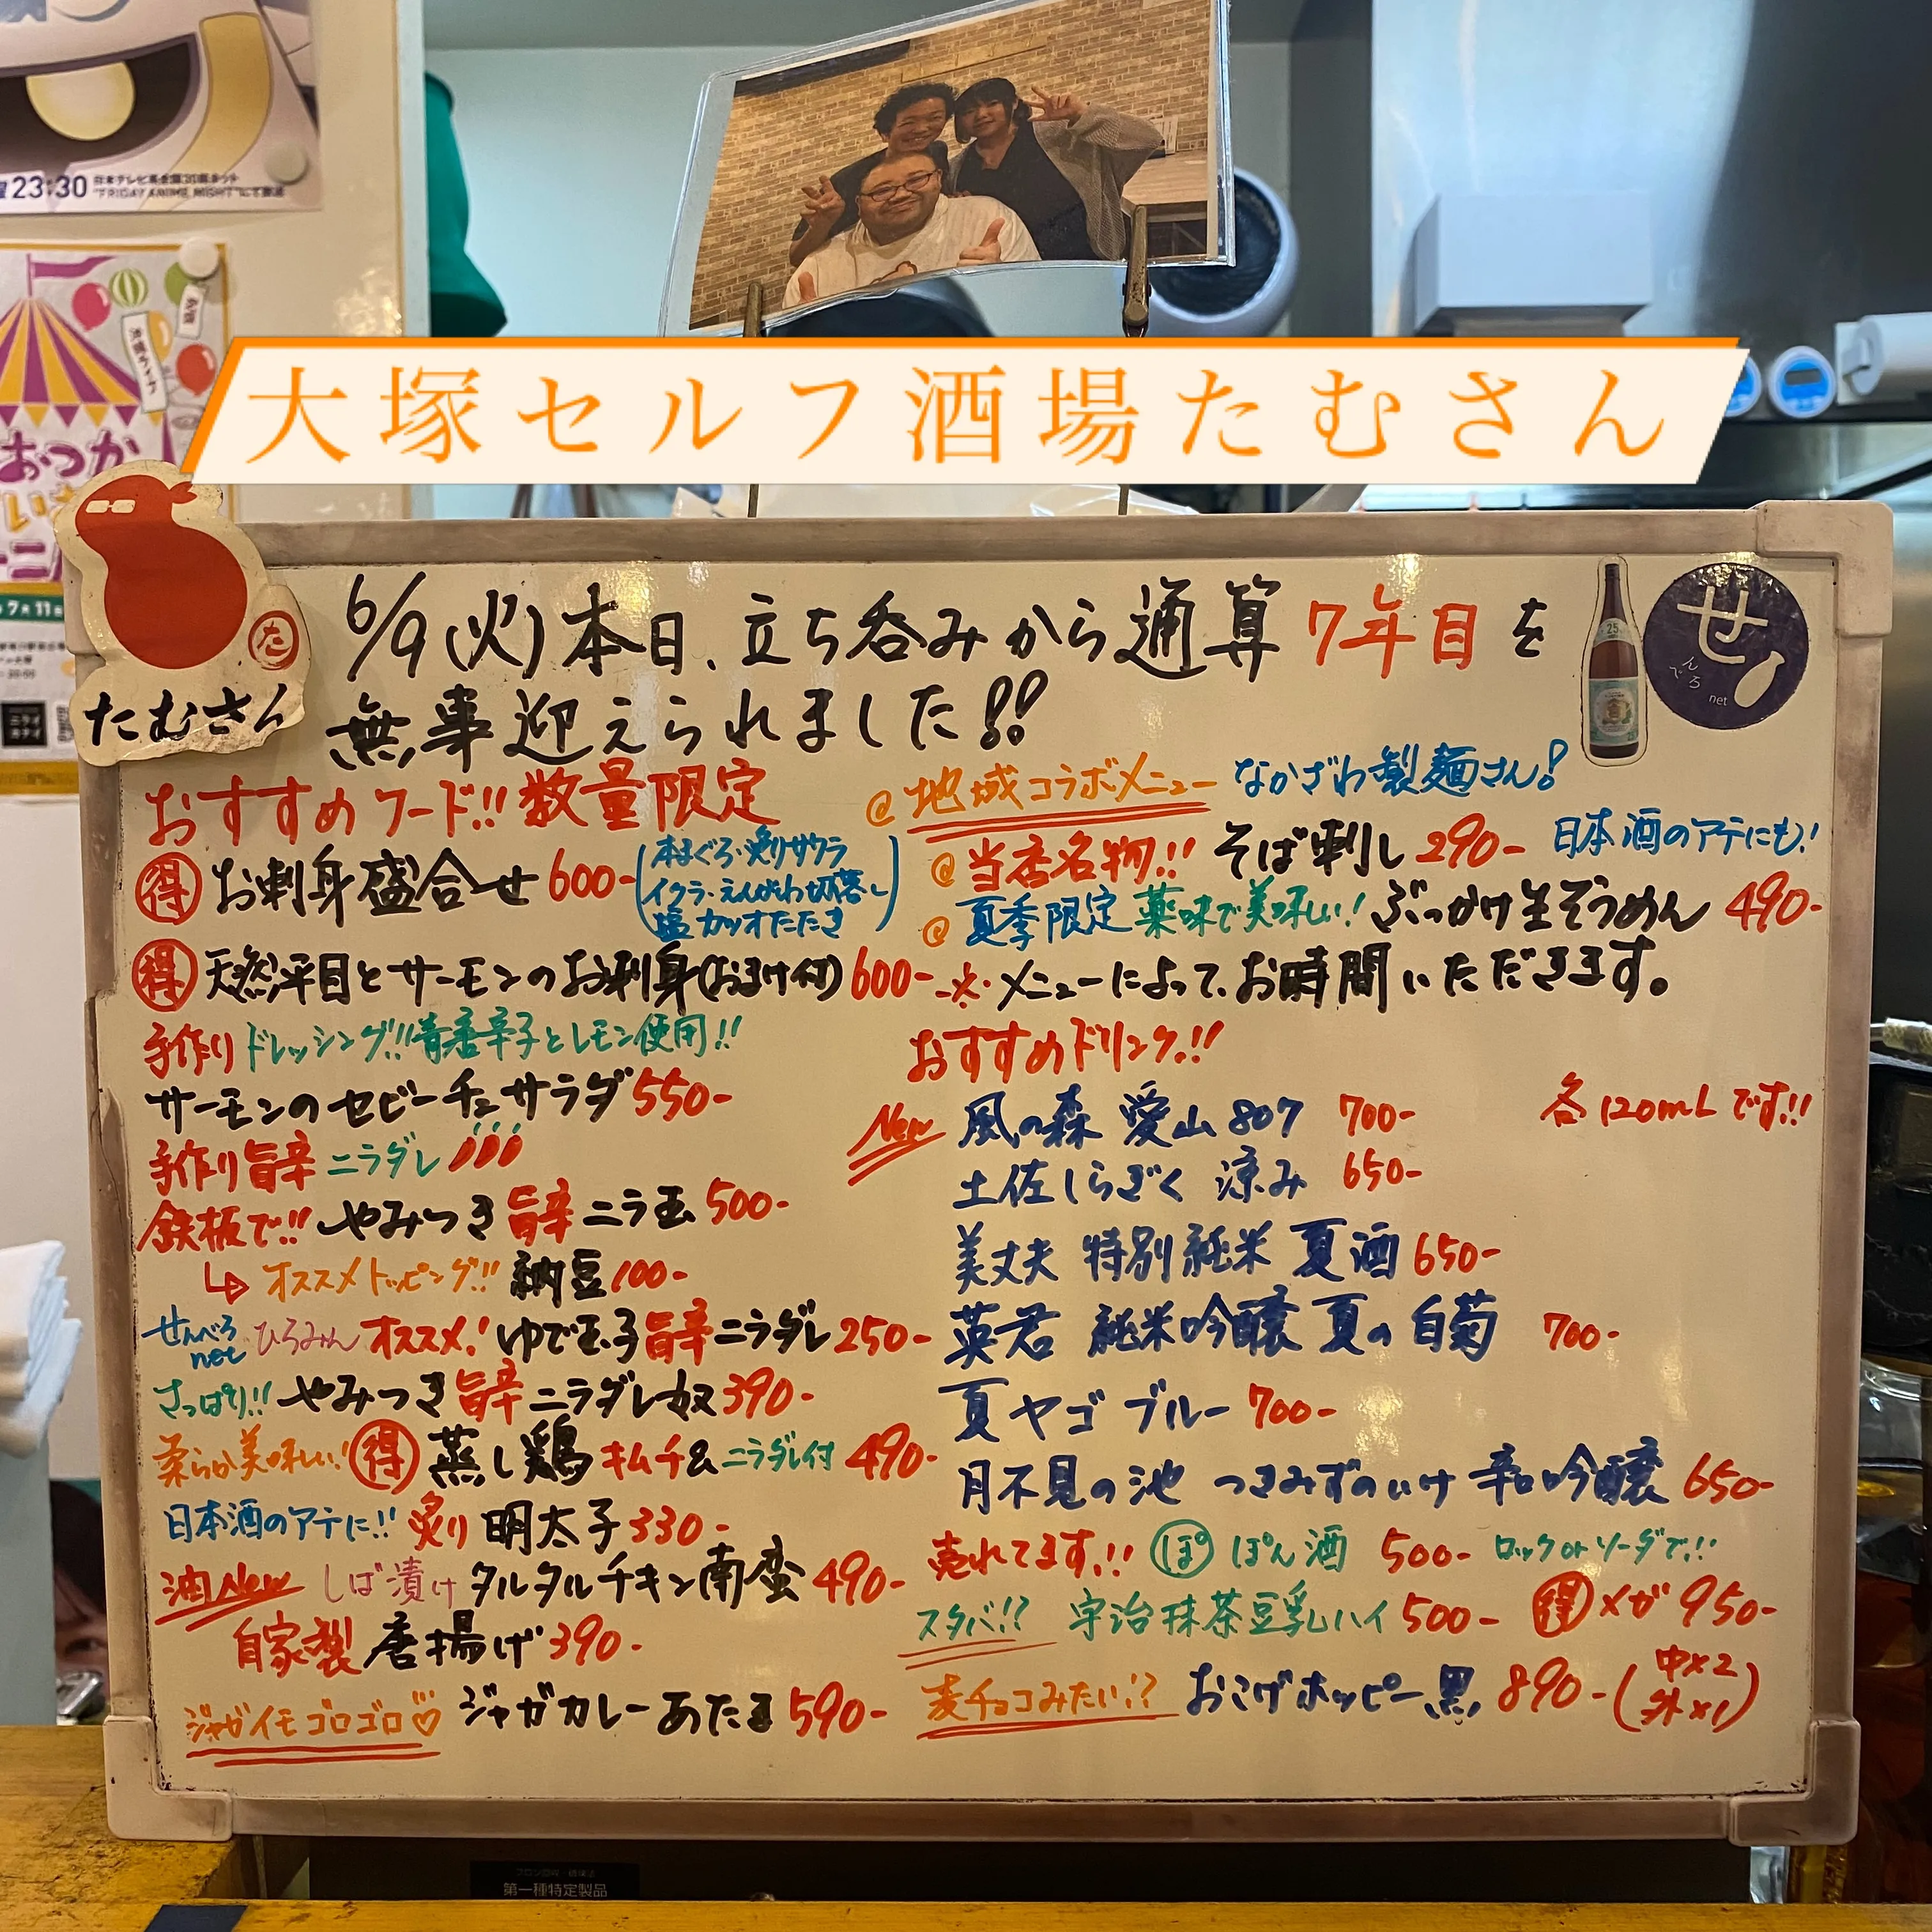 23:30 日本テレビ系全国30局ネット
"FRIDAY ANIME NIGHT"にて放送
おつか
大塚セルフ酒場たむさん
た
たむさん
せんべろ
net
25
6/9(火)本日、立ち呑みから通算7年目を
無事迎えられました!!
おすすめフード!!数量限定
得 お刺身盛合せ 600-
(本まぐろ・炙りサワラ
イクラ・えんがわ切落し
塩カツオたたき)
得 天然平目とサーモンのお刺身(おまけ付)600-
手作りドレッシング!!青唐辛子とレモン使用!!
サーモンのセビーチェサラダ550-
手作り旨辛ニラダレ
鉄板で!!やみつき旨辛ニラ玉500-
↳オススメトッピング!!納豆100-
せんべろnet ひろみん オススメ!ゆで玉子旨辛ニラダレ250-
さっぱり!!やみつき旨辛ニラダレ奴390-
柔らか美味しい!得 蒸し鶏 キムチ&ニラダレ付 490-
日本酒のアテに!!炙り明太子330-
油New しば漬けタルタルチキン南蛮490-
自家製唐揚げ390-
ジャガイモゴロゴロ♡ ジャガカレーあたま590-
@地域コラボメニュー なかざわ製麺さん!
@当店名物!!そば刺し290- 日本酒のアテにも!
@夏季限定 薬味で美味しい!ぶっかけ生そうめん490-
※メニューによって、お時間いただきます。
おすすめドリンク!!
各120mLです!!
New 風の森 愛山807 700-
土佐しらぎく 涼み 650-
美丈夫 特別純米 夏酒650-
英君 純米吟醸 夏の白菊 700-
夏ヤゴブルー700-
月不見の池 つきみずのいけ 辛口吟醸 650-
売れてます!! ぽ ぽん酒 500- ロックorソーダで!!
スタバ!? 宇治抹茶豆乳ハイ500- 得メガ950-
麦チョコみたい!? おこげホッピー黒 890-(中×2
外×1)
第一種特定製品